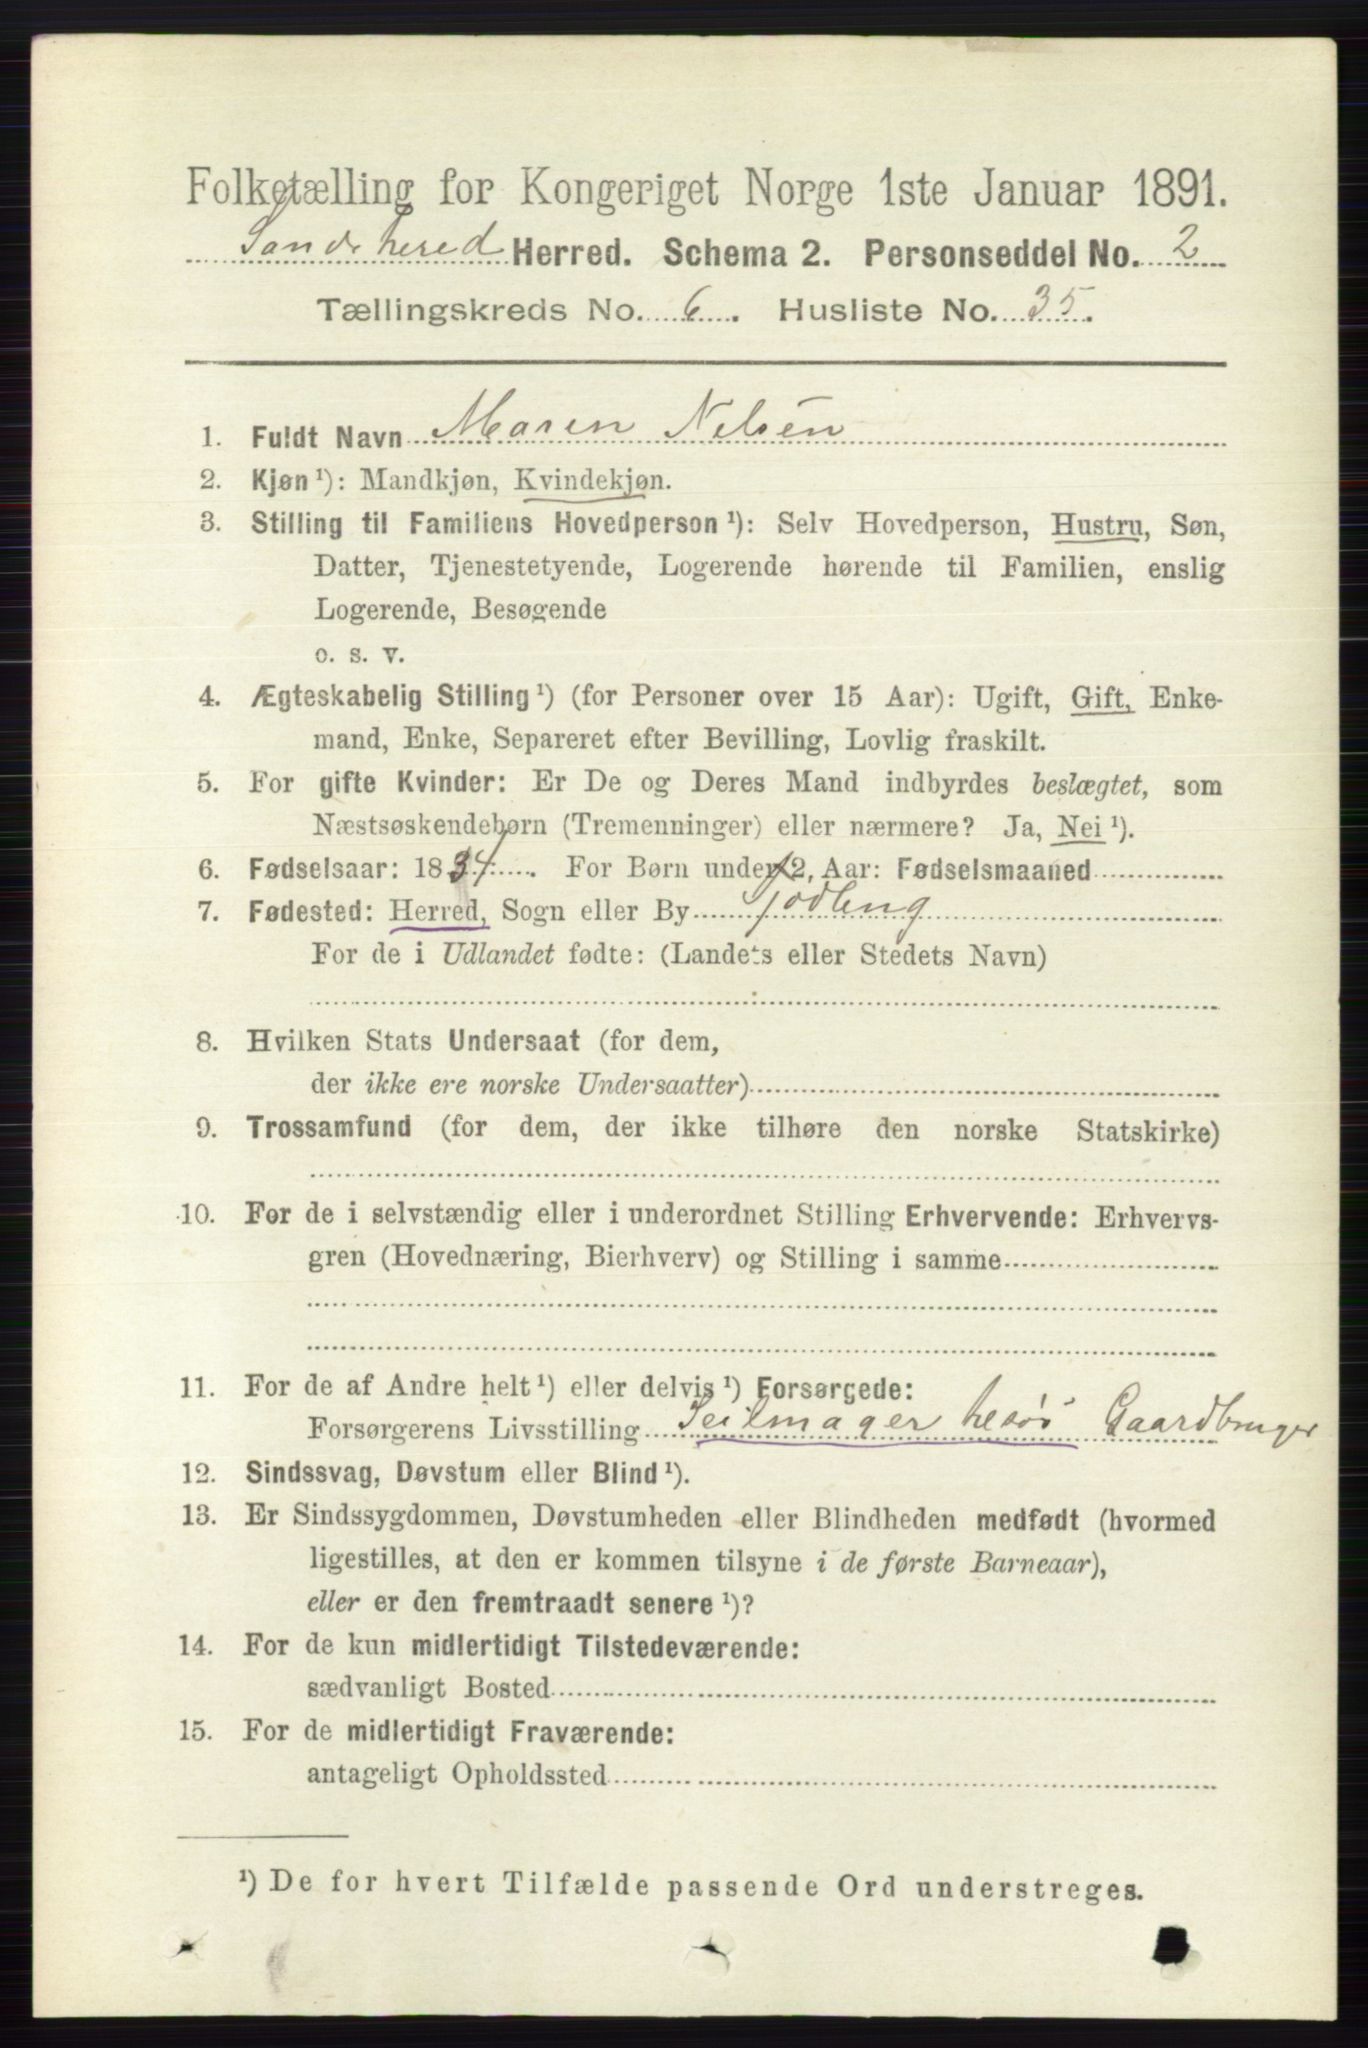 Folketælling for Kongeriget Norge 1ste Januar 1891.
Sandehered Herred. Schema 2. Personseddel No. 2
Tællingskreds No. 6. Husliste No. 35.
1. Fuldt Navn Maren Nelsen
2. Kjøn ¹): Mandkjøn, Kvindekjøn.
3. Stilling til Familiens Hovedperson ¹): Selv Hovedperson, Hustru, Søn,
Datter, Tjenestetyende, Logerende hørende til Familien, enslig
Logerende, Besøgende
o. s. v.
4. Ægteskabelig Stilling ¹) (for Personer over 15 Aar): Ugift, Gift, Enke-
mand, Enke, Separeret efter Bevilling, Lovlig fraskilt.
5. For gifte Kvinder: Er De og Deres Mand indbyrdes beslægtet, som
Næstsøskendebørn (Tremenninger) eller nærmere? Ja, Nei ¹).
6. Fødselsaar: 1834. For Børn under 2, Aar: Fødselsmaaned
7. Fødested: Herred, Sogn eller By
For de i Udlandet fødte: (Landets eller Stedets Navn)
8. Hvilken Stats Undersaat (for dem,
der ikke ere norske Undersaatter)
9. Trossamfund (for dem, der ikke tilhøre den norske Statskirke)
10. For de i selvstændig eller i underordnet Stilling Erhvervende: Erhvervs-
gren (Hovednæring, Bierhverv) og Stilling i samme
11. For de af Andre helt ¹) eller delvis ¹) Forsørgede:
Forsørgerens Livsstilling Seilmager Gaardbruger
12. Sindssvag, Døvstum eller Blind ¹).
13. Er Sindssygdommen, Døvstumheden eller Blindheden medfødt (hvormed
ligestilles, at den er kommen tilsyne i de første Barneaar),
eller er den fremtraadt senere ¹)?
14. For de kun midlertidigt Tilstedeværende:
sædvanligt Bosted
15. For de midlertidigt Fraværende:
antageligt Opholdssted
¹) De for hvert Tilfælde passende Ord understreges.